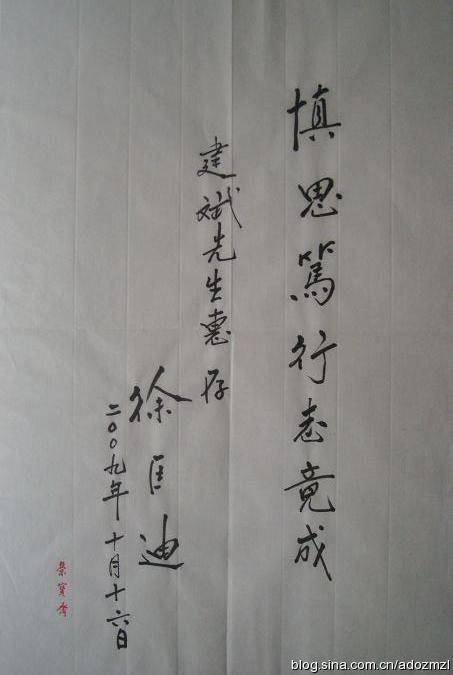 慎思篤行志竟成
建斌先生惠存
徐匡迪
二00九年十月十六日
荣宝斋
blog.sina.com.cn/adozmzl